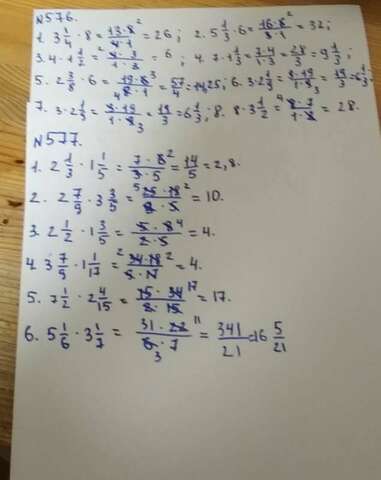 N576.
1. 3 1/4 · 8 = 13·8²/4·1 = 26; 2. 5 1/3 · 6 = 16·6²/3·1 = 32;
3. 4 · 1 1/2 = ²4·3/1·2 = 6; 4. 7 · 1 1/3 = 7·4/1·3 = 28/3 = 9 1/3;
5. 2 3/8 · 6 = 19·6³/4 8·1 = 57/4 = 14,25; 6. 3 · 2 1/3 =
7. 3 · 2 1/3 = 6 1/3; 8. 8 · 3 1/2 = ⁴8·7/1·2 = 28.
N577.
1. 2 1/3 · 1 1/5 = 7·6²/3·5 = 14/5 = 2,8.
2. 2 7/9 · 3 3/5 = ⁵25·18²/9·5 = 10.
3. 2 1/2 · 1 3/5 = 5·8⁴/2·5 = 4.
4 3 7/9 · 1 1/17 = ²34·18²/9·17 = 4.
5. 7 1/2 · 2 4/15 = 15·34¹⁷/2·15 = 17.
6. 5 1/6 · 3 1/7 = 31·22¹¹/6·7 3 = 341/21 = 16 5/21